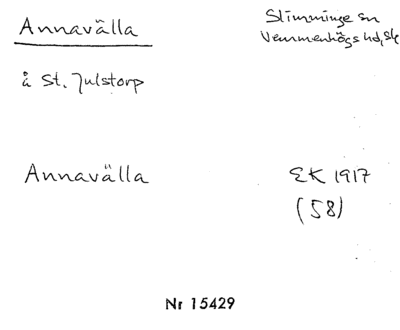 Annavälla
Slimminge sn
Vemmenhögs hd, Sk
å St. Julstorp
Annavälla
EK 1917
(58)
Nr 15429